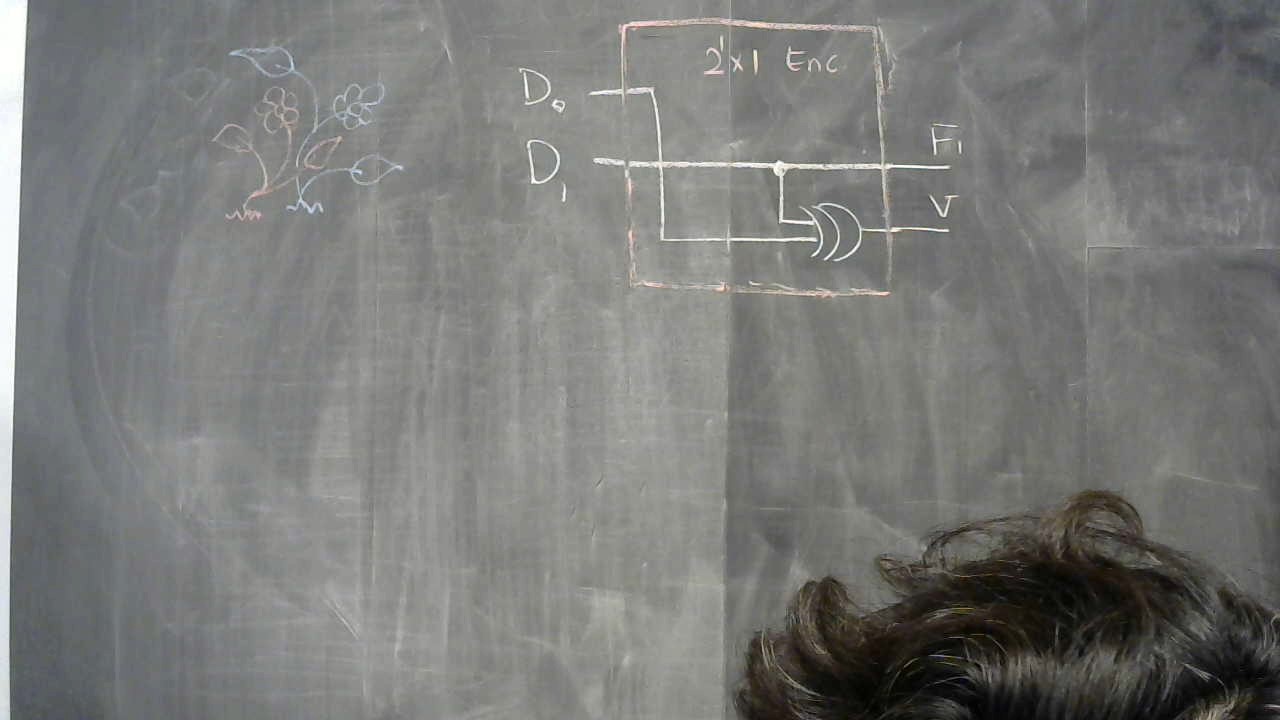 2'x1 Enc
D₀
D₁
F₁
V